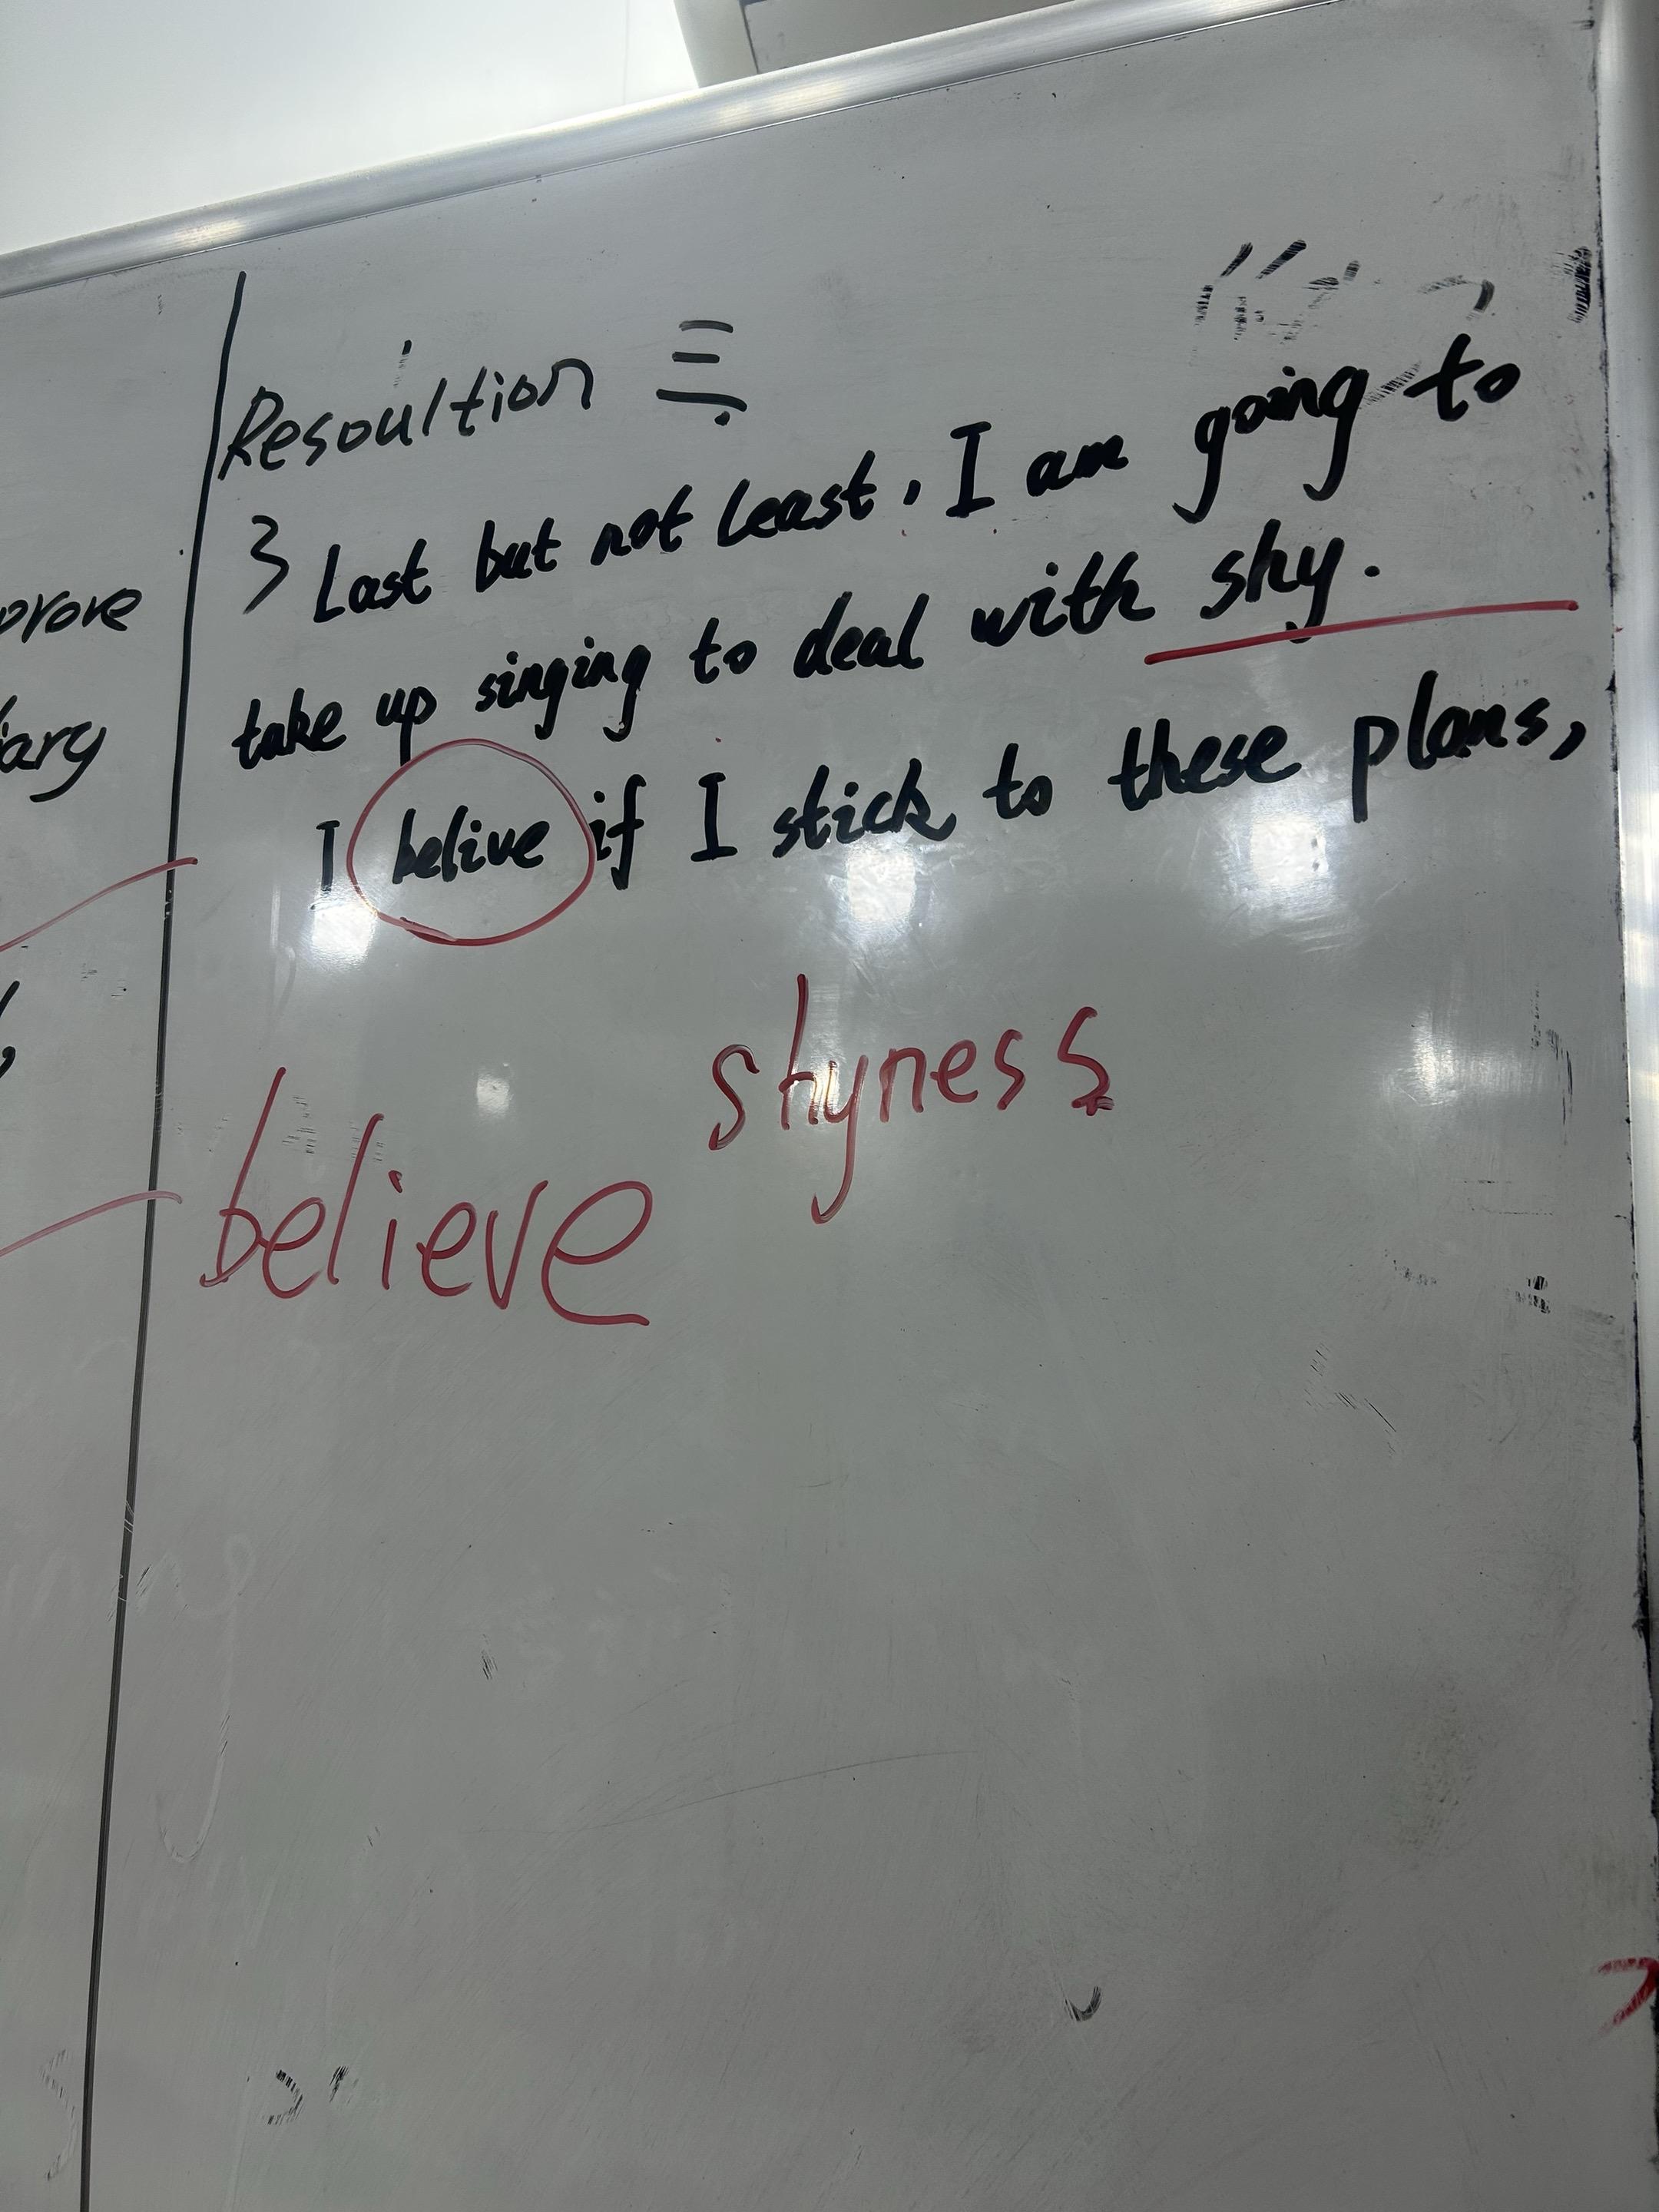 prove
iary
Resoultion 三.
3 Last but not least, I am going to
take up singing to deal with shy.
I belive if I stick to these plans,
shyness
believe